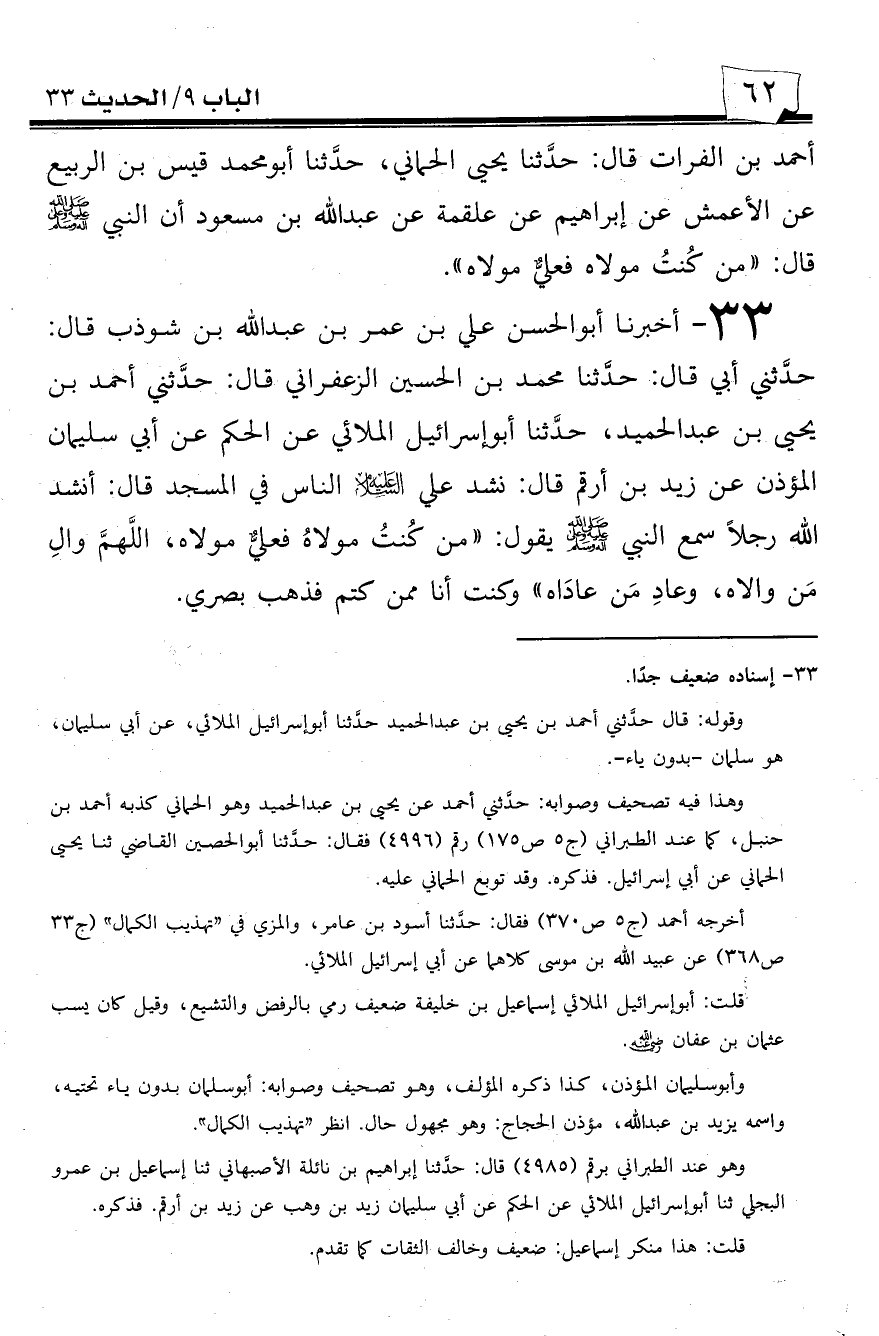 ٦٢
الباب ٩/ الحديث ٣٣
أحمد بن الفرات قال: حدَّثنا يحيى الحماني، حدَّثنا أبومحمد قيس بن الربيع
عن الأعمش عن إبراهيم عن علقمة عن عبدالله بن مسعود أن النبي ﷺ
قال: «من كُنتُ مولاه فعليٌّ مولاه».
٣٣- أخبرنا أبوالحسن علي بن عمر بن عبدالله بن شوذب قال:
حدَّثني أبي قال: حدَّثنا محمد بن الحسين الزعفراني قال: حدَّثني أحمد بن
يحيى بن عبدالحميد، حدَّثنا أبوإسرائيل الملائي عن الحكم عن أبي سليمان
المؤذن عن زيد بن أرقم قال: نشد علي عليه السلام الناس في المسجد قال: أنشد
الله رجلاً سمع النبي ﷺ يقول: «من كُنتُ مولاهُ فعليٌّ مولاه، اللَّهمَّ والِ
مَن والاه، وعادِ مَن عادَاه» وكنت أنا ممن كتم فذهب بصري.
٣٣- إسناده ضعيف جدًا.
وقوله: قال حدَّثني أحمد بن يحيى بن عبدالحميد حدَّثنا أبوإسرائيل الملائي، عن أبي سليمان،
هو سلمان -بدون ياء-.
وهذا فيه تصحيف وصوابه: حدَّثني أحمد عن يحيى بن عبدالحميد وهو الحماني كذبه أحمد بن
حنبل، كما عند الطبراني (ج٥ ص١٧٥) رقم (٤٩٩٦) فقال: حدَّثنا أبوالحصين القاضي ثنا يحيى
الحماني عن أبي إسرائيل. فذكره. وقد توبع الحماني عليه.
أخرجه أحمد (ج٥ ص٣٧٠) فقال: حدَّثنا أسود بن عامر، والمزي في «تهذيب الكمال» (ج٣٣
ص٣٦٨) عن عبيد الله بن موسى كلاهما عن أبي إسرائيل الملائي.
قلت: أبوإسرائيل الملائي إسماعيل بن خليفة ضعيف رمي بالرفض والتشيع، وقيل كان يسب
عثمان بن عفان رضي الله عنه.
وأبوسليمان المؤذن، كذا ذكره المؤلف، وهو تصحيف وصوابه: أبوسلمان بدون ياء تحتيه،
واسمه يزيد بن عبدالله، مؤذن الحجاج: وهو مجهول حال. انظر «تهذيب الكمال».
وهو عند الطبراني برقم (٤٩٨٥) قال: حدَّثنا إبراهيم بن نائلة الأصبهاني ثنا إسماعيل بن عمرو
البجلي ثنا أبوإسرائيل الملائي عن الحكم عن أبي سليمان زيد بن وهب عن زيد بن أرقم. فذكره.
قلت: هذا منكر إسماعيل: ضعيف وخالف الثقات كما تقدم.